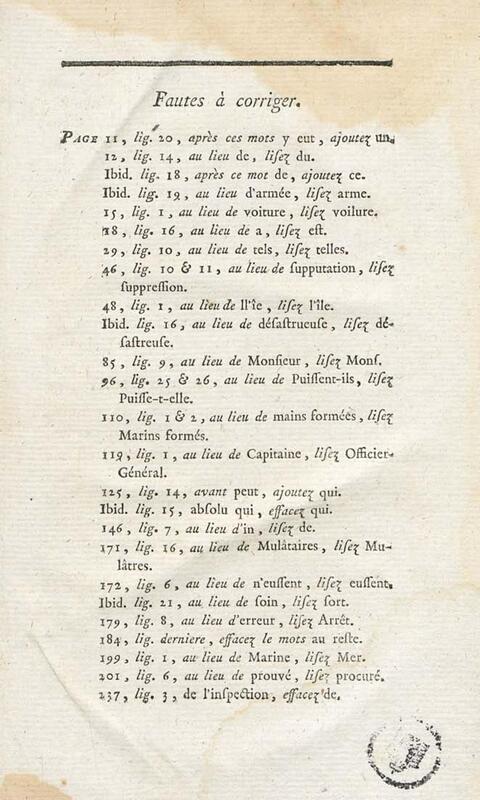 Fautes à corriger.
PAGE 11, lig. 20, après ces mots y eut, ajoutez un.
12, lig. 14, au lieu de, liſez du.
Ibid. lig. 18, après ce mot de, ajoutez ce.
Ibid. lig. 19, au lieu d'armée, liſez arme.
15, lig. 1, au lieu de voiture, liſez voilure.
18, lig. 16, au lieu de a, liſez eſt.
29, lig. 10, au lieu de tels, liſez telles.
46, lig. 10 & 11, au lieu de ſupputation, liſez
ſuppreſſion.
48, lig. 1, au lieu de ll'île, liſez l'île.
Ibid. lig. 16, au lieu de déſaſtrueuſe, liſez dé-
ſaſtreuſe.
85, lig. 9, au lieu de Monſieur, liſez Monſ.
96, lig. 25 & 26, au lieu de Puiſſent-ils, liſez
Puiſſe-t-elle.
110, lig. 1 & 2, au lieu de mains formées, liſez
Marins formés.
119, lig. 1, au lieu de Capitaine, liſez Officier-
Général.
125, lig. 14, avant peut, ajoutez qui.
Ibid. lig. 15, abſolu qui, effacez qui.
146, lig. 7, au lieu d'in, liſez de.
171, lig. 16, au lieu de Mulâtaires, liſez Mu-
lâtres.
172, lig. 6, au lieu de n'euſſent, liſez euſſent.
Ibid. lig. 21, au lieu de ſoin, liſez ſort.
179, lig. 8, au lieu d'erreur, liſez Arrêt.
184, lig. derniere, effacez le mots au reſte.
199, lig. 1, au lieu de Marine, liſez Mer.
201, lig. 6, au lieu de prouvé, liſez procuré.
237, lig. 3, de l'inſpection, effacez de.